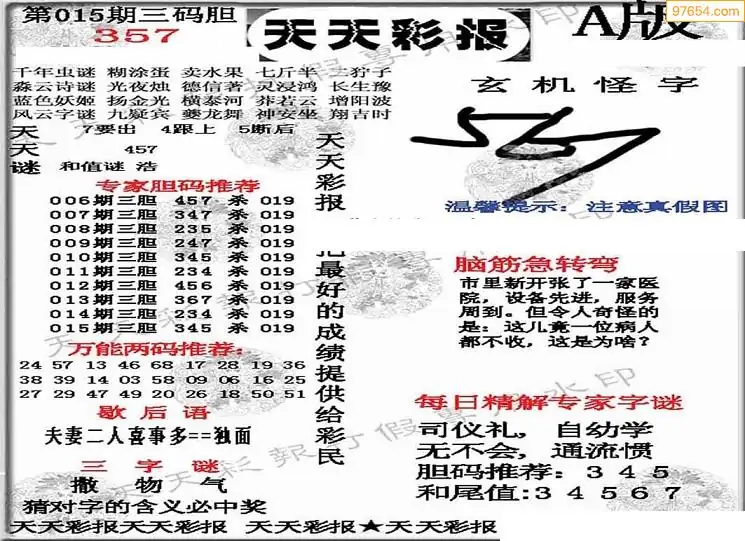 第015期三码胆
357
天天彩报
A版
97654.com
千年虫谜 糊涂蛋 卖水果 七斤半 三狩子
淼云诗谜 光夜烛 德信著 灵浸鸿 长生豫
蓝色妖姬 扬金光 横泰河 莽若云 增阳波
风云字谜 九疑宾 夔龙舞 神安坐 翔吉时
天 7要出 4跟上 5断后
天 457
谜 和值谜 浩
专家胆码推荐
006期三胆 457 杀 019
007期三胆 347 杀 019
008期三胆 235 杀 019
009期三胆 247 杀 019
010期三胆 345 杀 019
011期三胆 234 杀 019
012期三胆 456 杀 019
013期三胆 367 杀 019
014期三胆 234 杀 019
015期三胆 345 杀 019
万能两码推荐:
24 57 13 46 68 17 28 19 36
38 39 14 03 58 09 06 16 25
27 29 47 49 20 26 18 50 51
歇后语
夫妻二人喜事多==独面
三字谜
撒物气
猜对字的含义必中奖
天天彩报
把最好的成绩提供给彩民
玄机怪字
567
温馨提示: 注意真假图
脑筋急转弯
市里新开张了一家医
院,设备先进,服务
周到。但令人奇怪的
是:这儿竟一位病人
都不收,这是为啥?
每日精解专家字谜
司仪礼, 自幼学
无不会,通流惯
胆码推荐:3 4 5
和尾值:3 4 5 6 7
天天彩报天天彩报 天天彩报★天天彩报